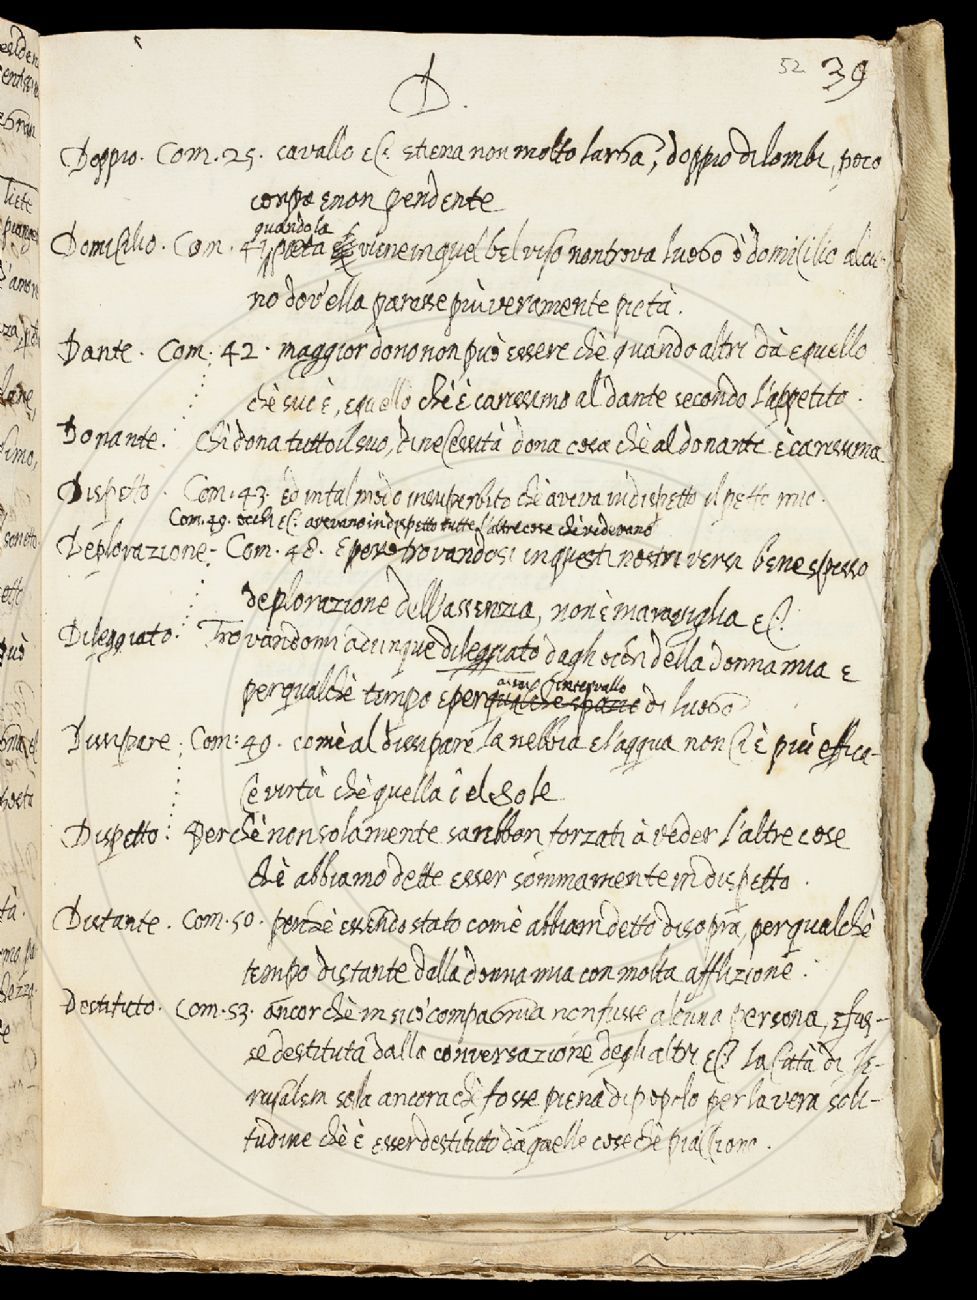 52 39
D.
Doppio. Com. 25. cavallo &c. schiena non molto larga, doppio di lombi, poco
corpo e non pendente
quando la
Domicilio. Com. 41. pietà viene in quel bel viso non trova luogo ò domicilio alcu-
no dov'ella paresse più veramente pietà.
Dante. Com. 42. maggior dono non può essere chè quando altri dà quello
chè suo è, e quello chè è carissimo al dante secondo l'appetito.
Donante. Chi dona tutto il suo, di necessità dona cosa chè al donante è carissima
Dispetto. Com. 43. ed in tal modo insuperbito che aveva in dispetto il petto mio.
Com. 49. occhi &c. avevano in dispetto tutte l'altre cose chè vedevano
Deplorazione. Com. 48. E però trovandosi in questi nostri versi bene spesso
deplorazione dell'assenzia, non è maraviglia &c.
Dileggiato. Trovandomi adunque dileggiato dagli occhi della donna mia e
assai intervallo
per qualchè tempo e per qualche spazio di luogo
Dissipare. Com. 49. comè al dissipare la nebbia e l'acqua non ci è più effica-
ce virtù chè quella del Sole
Dispetto. Perchè non solamente sarebbon forzati à veder l'altre cose
chè abbiamo dette esser sommamente in dispetto.
Distante. Com. 50. perchè essendo stato comè abbiam detto di sopra, per qualchè
tempo distante dalla donna mia con molta afflizione.
Destituto. Com. 53. ancor chè in sua compagnia non fusse alcuna persona, e fus-
se destituta dalla conversazione degli altri &c. la Città di Je-
rusalem sola ancora chè fosse piena di popolo per la vera soli-
tudine chè è esser destituto da quelle cose chè piacciono.